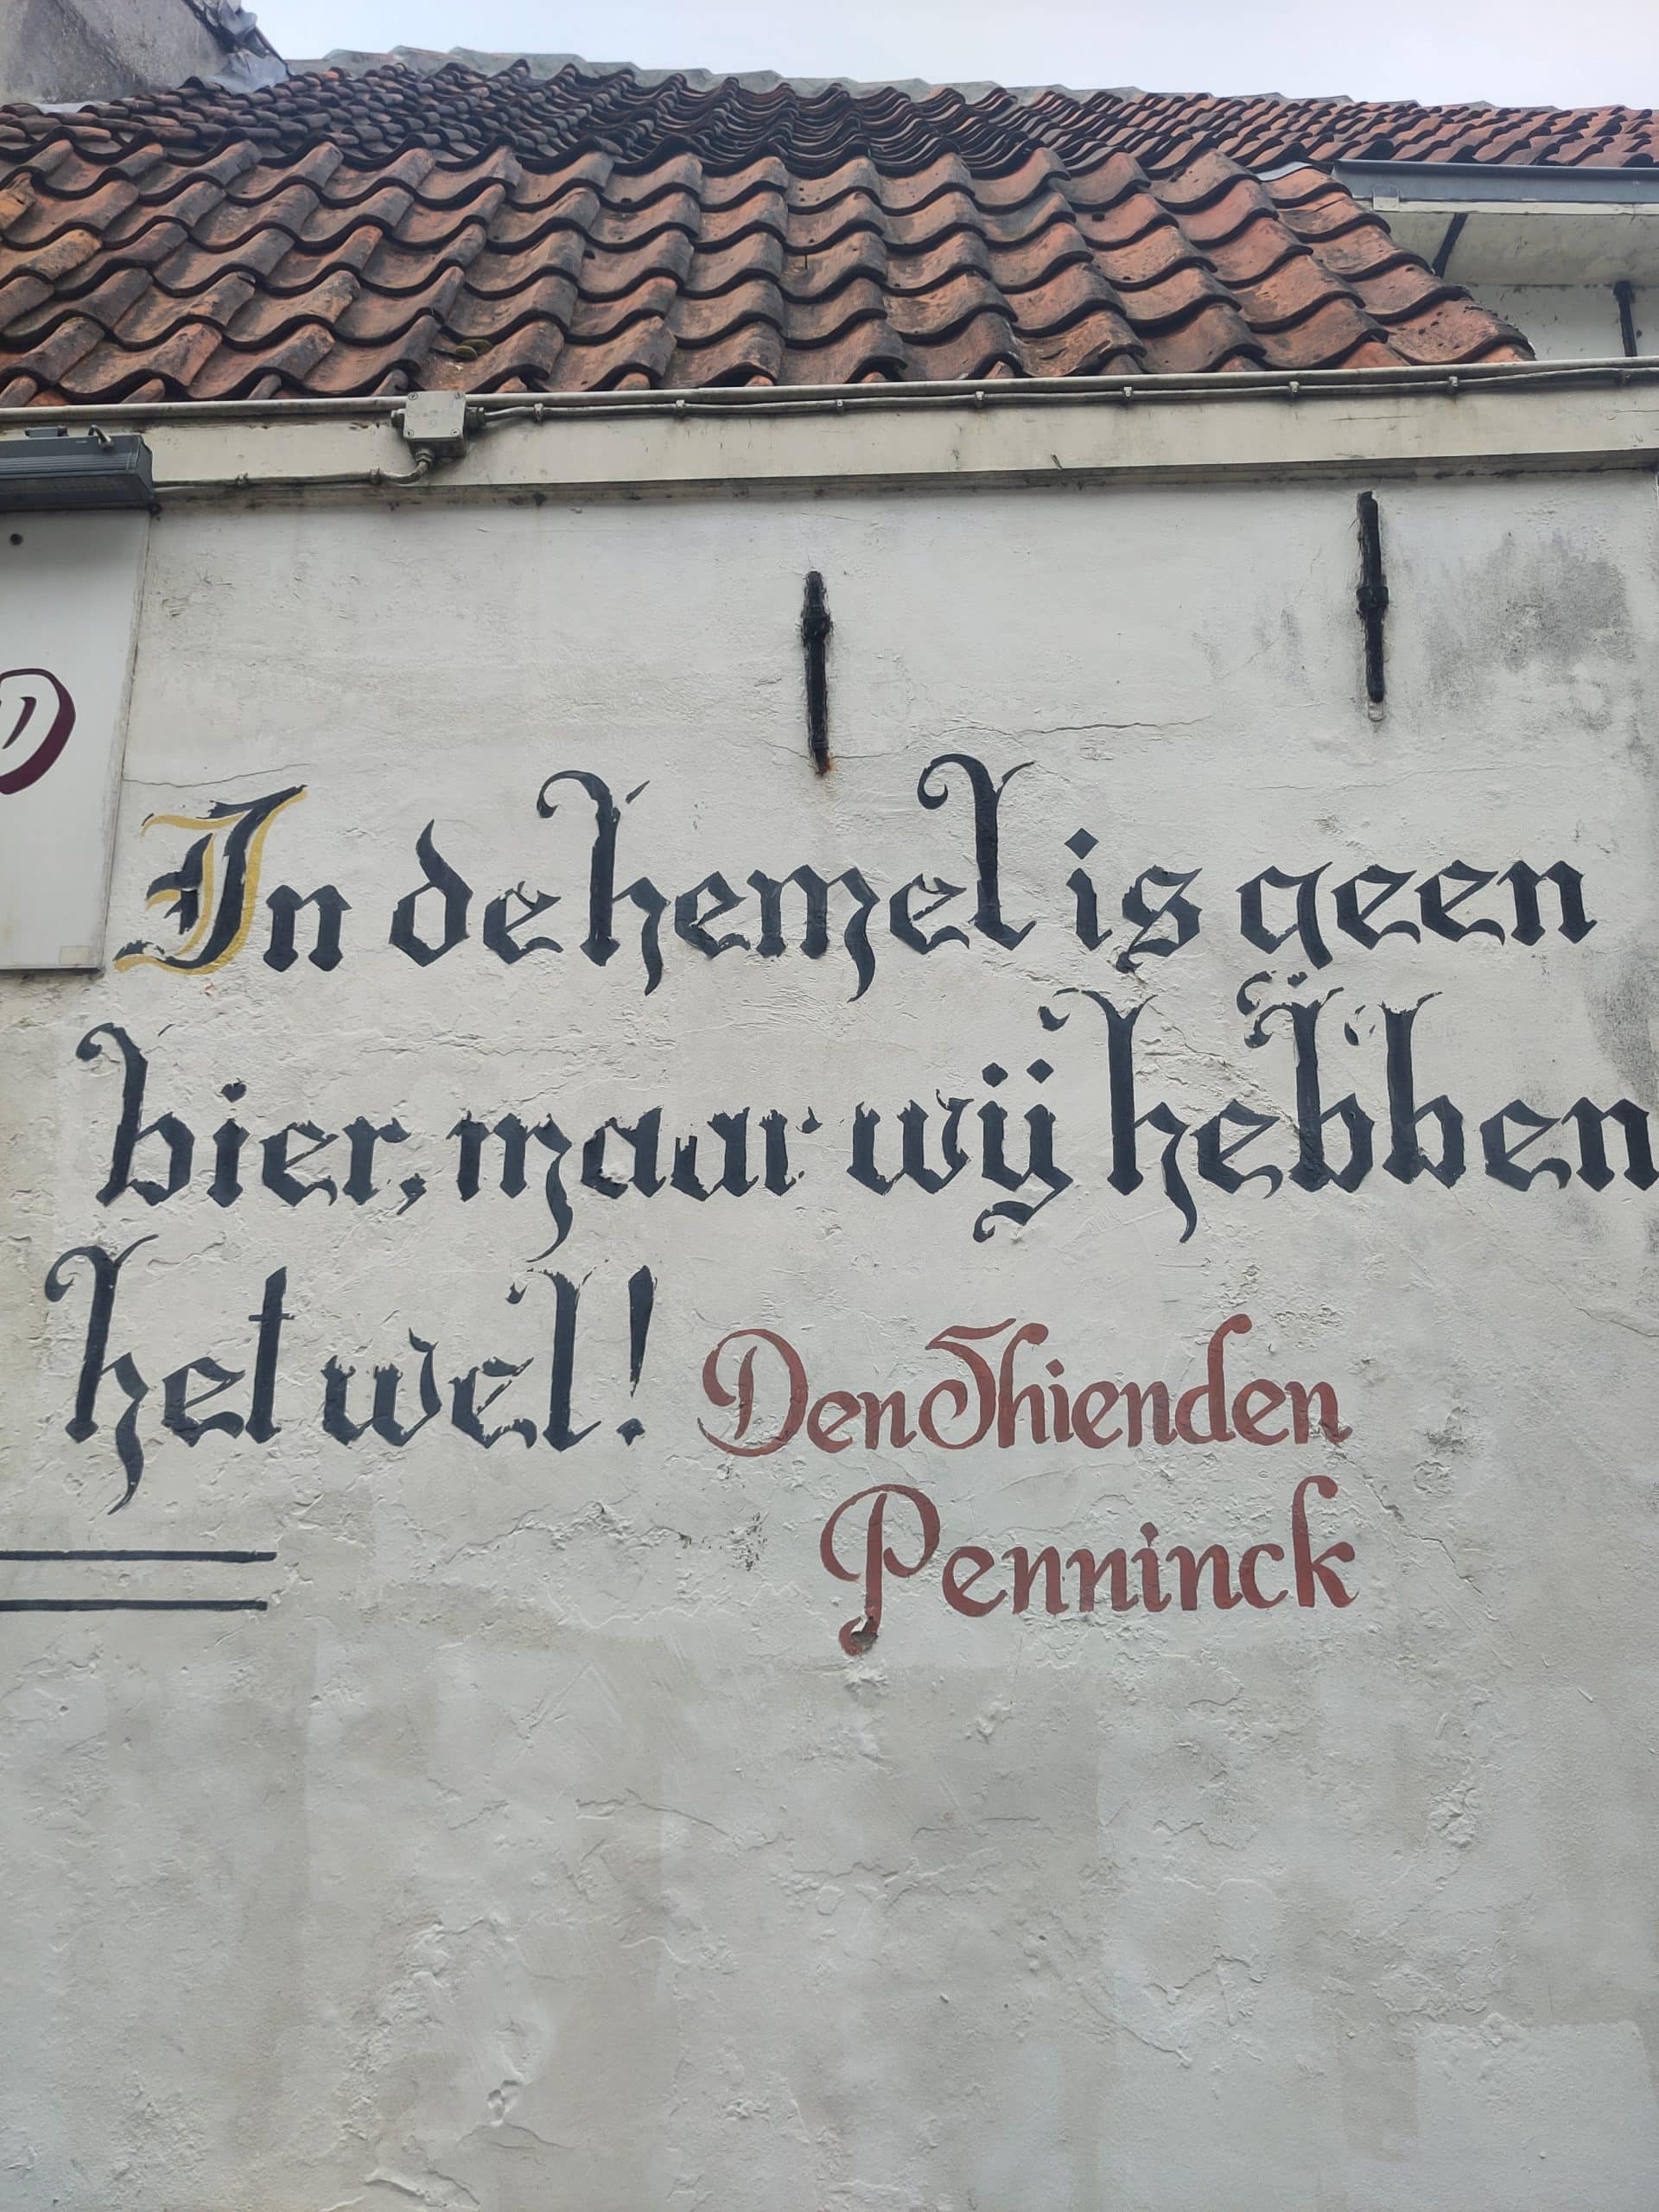 In de hemel is geen
bier, maar wij hebben
het wel!
Den Thienden
Penninck